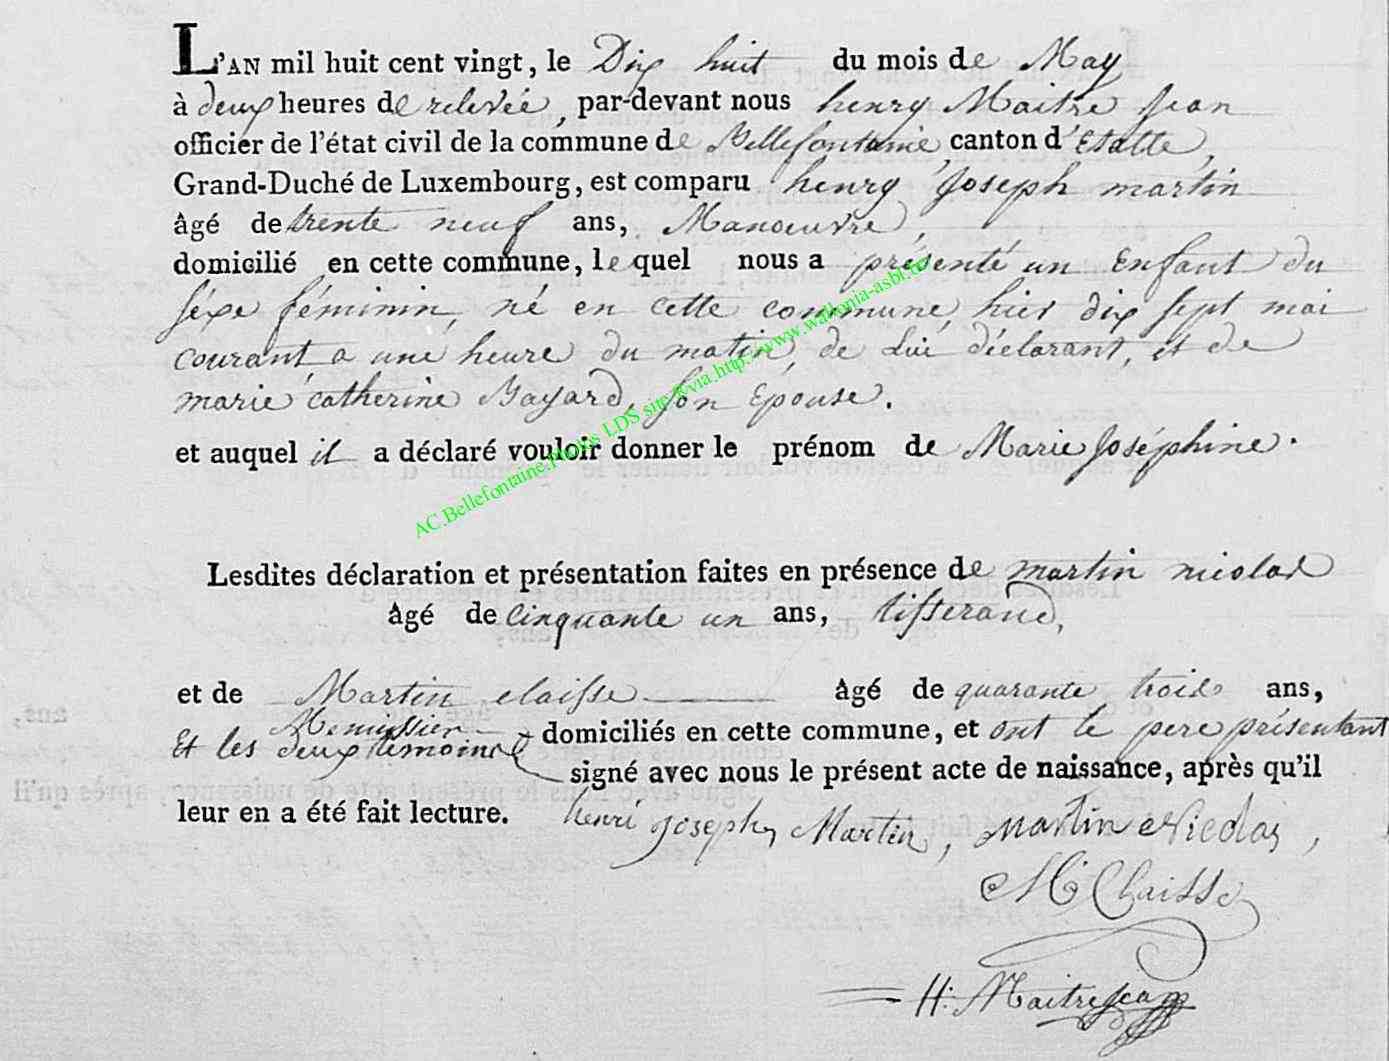 L'AN mil huit cent vingt, le Dix huit du mois de May
à deux heures de relevée, par-devant nous henry Maitre Jean
officier de l'état civil de la commune de Bellefontaine, canton d'Etalle,
Grand-Duché de Luxembourg, est comparu henry Joseph martin
âgé de trente neuf ans, Manœuvre,
domicilié en cette commune, lequel nous a présenté un Enfant du
séxe féminin, né en cette commune, hier dix sept mai
courant, a une heure du matin, de Lui déclarant, et de
marie catherine Bayard, son Epouse.
et auquel il a déclaré vouloir donner le prénom de Marie Joséphine.
AC.Bellefontaine.Photos LDS site @via.http://www.wallonia-asbl.be
Lesdites déclaration et présentation faites en présence de martin nicolas
âgé de cinquante un ans, tisserand,
et de Martin claisse âgé de quarante trois ans,
Menuissier
Et les deux témoins domiciliés en cette commune, et ont le pere présentant
signé avec nous le présent acte de naissance, après qu'il
leur en a été fait lecture. henri joseph Martin, martin Nicolas,
M Claisse
H: Maitrejean